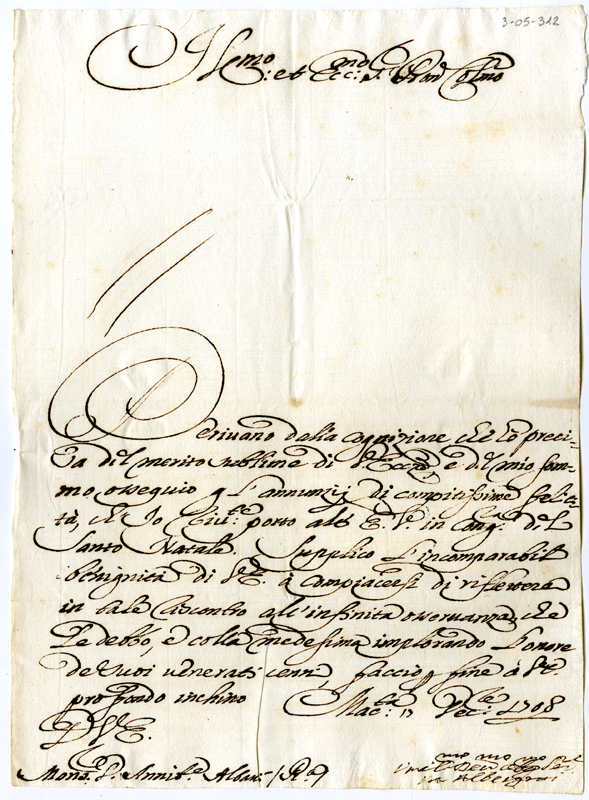 3-05-312
Illmo: et Ecc:mo S. Pron Colmo
Derivano dalla cognizione che hò preci-
sa del merito sublime di V. Ecc.a, e del mio som-
mo ossequio gl'annunzij di compitissime felici-
tà, che Io porto all' E. V. in cong.a del
Santo Natale. Supplico l'incomparabil
benignità di V.E. à compiacersi di riflettere
in tale riscontro all'infinita osservanza, che
Le debbo, e colla medesima implorando l'onore
de suoi venerati cenni, faccio fine à V.E.
profondo inchino Mac.ta Xbre 1708
D. V. E.
Mons.r D. Annib.e Albani